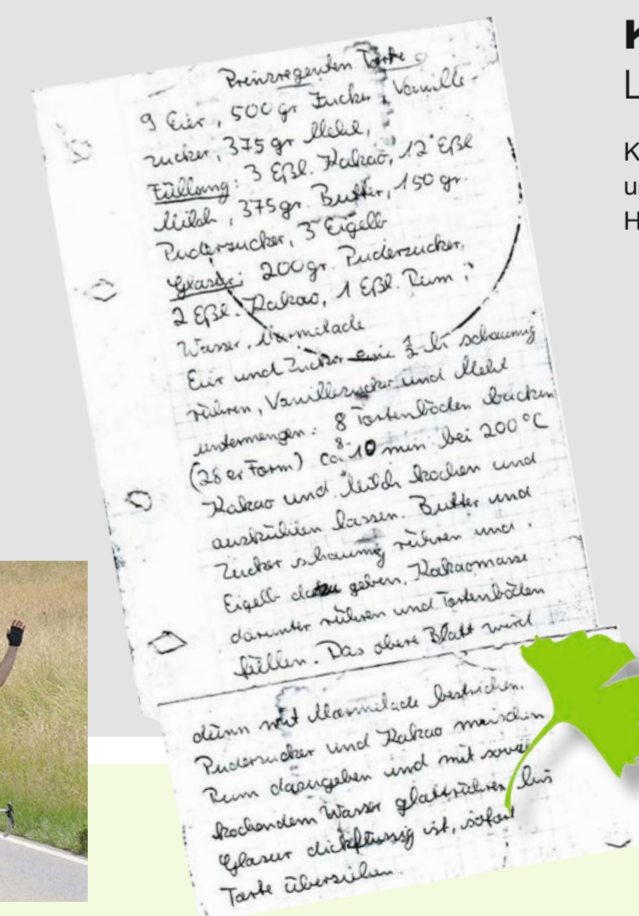 Prinzregenten Torte
9 Eier, 500 gr Zucker, Vanille-
zucker, 375 gr Mehl,
Füllung: 3 Eßl. Kakao, 12 Eßl
Milch, 375 gr. Butter, 150 gr.
Puderzucker, 3 Eigelb
Glasur: 200 gr. Puderzucker,
2 Eßl. Kakao, 1 Eßl. Rum,
Wasser, Marmelade
Eier und Zucker eine ½ Std schaumig
rühren, Vanillezucker und Mehl
untermengen. 8 Tortenböden backen
(28 er Form) ca 8-10 min bei 200°C
Kakao und Milch kochen und
auskühlen lassen. Butter und
Zucker schaumig rühren und
Eigelb dazu geben, Kakaomasse
darunter rühren und Tortenböden
füllen. Das obere Blatt wird
dünn mit Marmelade bestrichen.
Puderzucker und Kakao mischen
Rum dazugeben und mit soviel
kochendem Wasser glattrühren bis
Glasur dickflüssig ist, sofort
Torte überziehen.
K
L
K
u
H